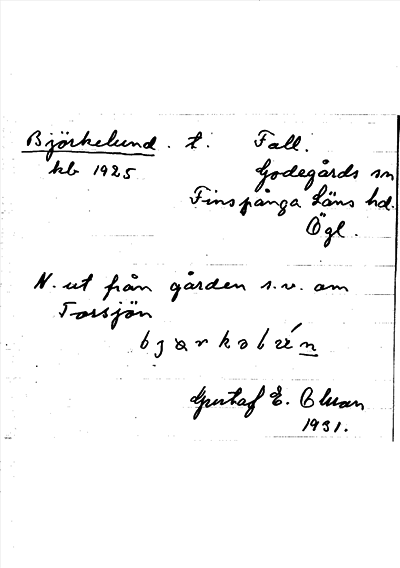 Björkelund. t. Fall.
kb 1925 Godegårds sn
Finspånga Läns hd.
Ögl.
N. ut från gården s.v. om
Torsjön
Gustaf E. Olson
1931.